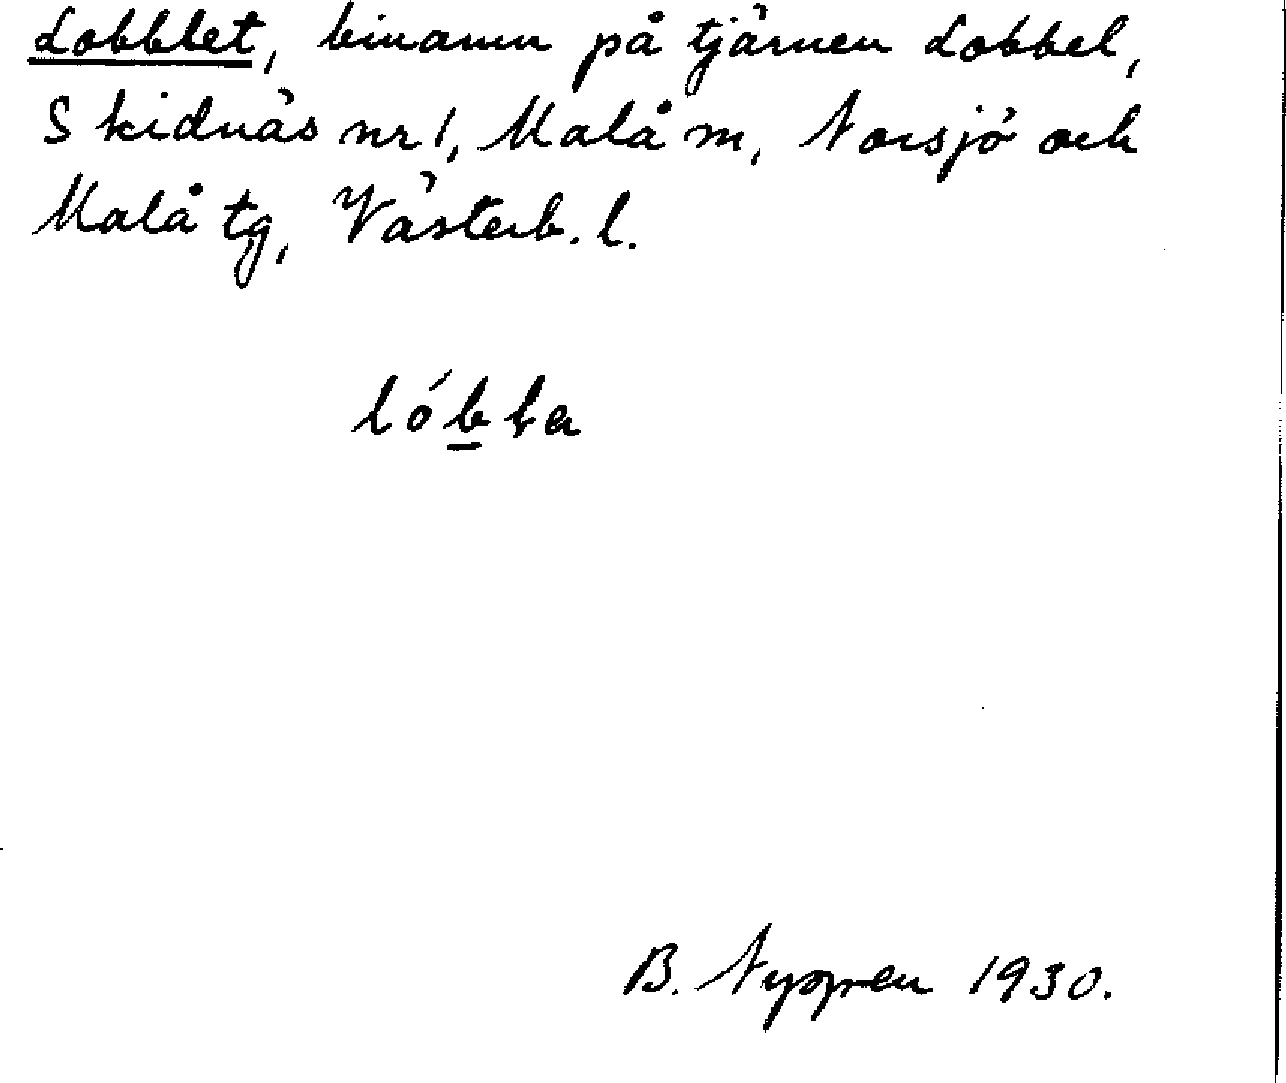 Lobblet, binamn på tjärnen Lobbel,
Skidnäs nr 1, Malå m, Norsjö och
Malå tg, Västerb. l.
B. 1930.